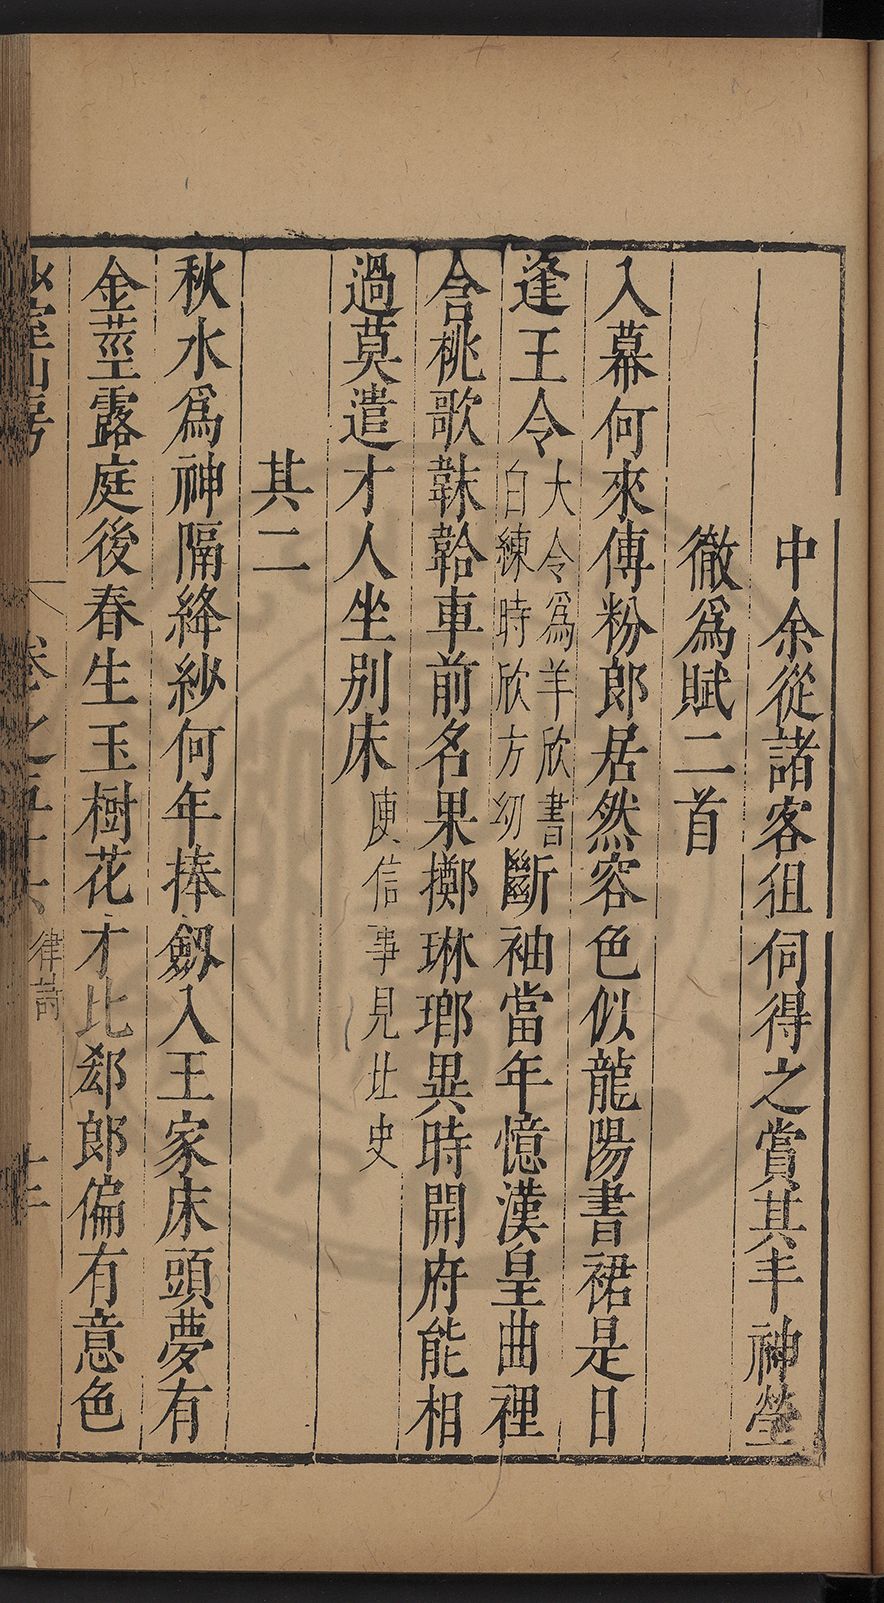 中余從諸客徂伺得之賞其丰神瑩
徹爲賦二首
入幕何來傅粉郎居然容色似龍陽書裙是日
逢王令大令爲羊欣書白練時欣方幼斷袖當年憶漢皇曲裡
含桃歌韎韐車前名果擲琳瑯異時開府能相
過莫遣才人坐別床庾信事見北史
其二
秋水爲神隔絳紗何年捧劔入王家床頭夢有
金莖露庭後春生玉樹花才比郄郎偏有意色
山房
卷之五十六律詩